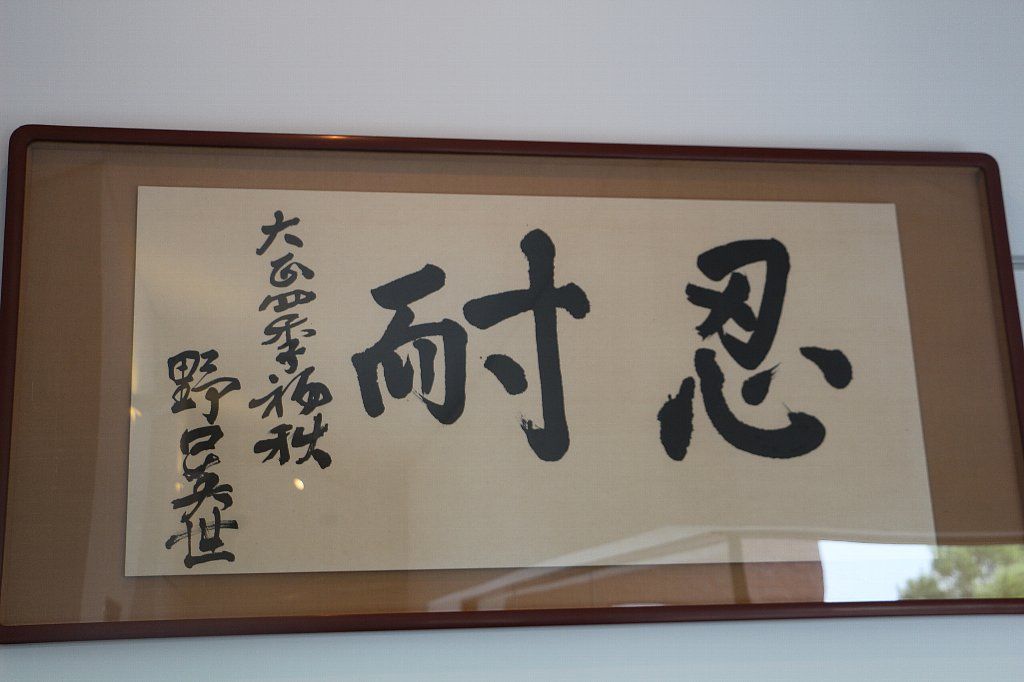 忍耐
大正四季初秋
野口英世